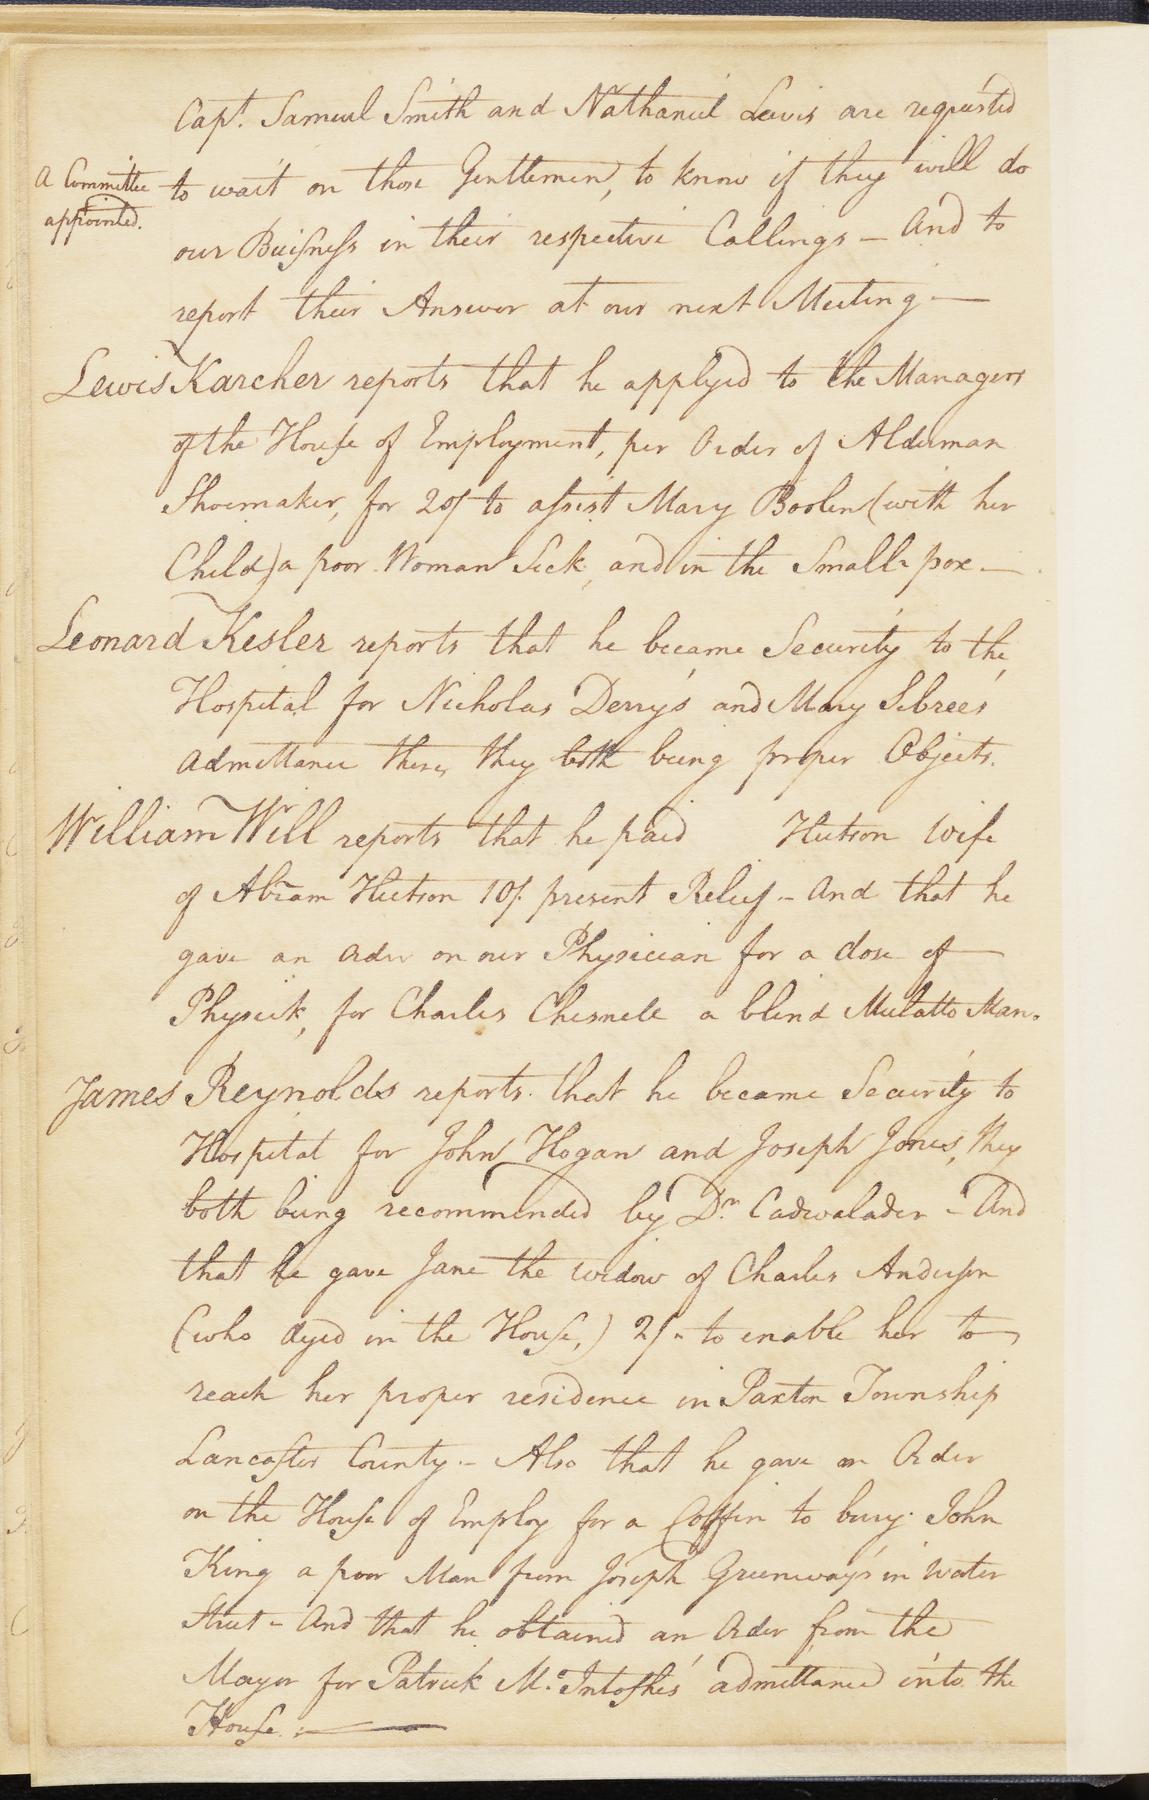 Capt. Samuel Smith and Nathaniel Lewis are requested
A Committee
appointed.
to wait on those Gentlemen, to know if they will do
our Buisness in their respective Callings – And to
report their Answer at our next Meeting –
Lewis Karcher reports that he applyed to the Managers
of the House of Employment, per Order of Alderman
Shoemaker, for 20/ to assist Mary Boolen (with her
Child) a poor Woman Sick, and in the Small pox –
Leonard Kesler reports that he became Security to the
Hospital for Nicholas Derry's and Mary Sebree's
admittance there, they both being proper Objects.
William Will reports that he paid Hutson Wife
of Abram Hutson 10/. present Relief – And that he
gave an Order on our Physician for a dose of
Physick, for Charles Chesnele a blind Mulatto Man.
James Reynolds reports that he became Security to
Hospital for John Hogan and Joseph Jones, they
both being recommended by Dr. Cadwalader – And
that he gave Jane the widow of Charles Anderson
(who dyed in the House,) 2/. to enable her to
reach her proper residence in Paxton Township
Lancaster County. – Also that he gave an Order
on the House of Employ for a Coffin to bury John
King a poor Man from Joseph Greenway's in Water
Street – And that he obtained an Order from the
Mayor for Patrick Mc.Intoshes' admittance into the
House. –